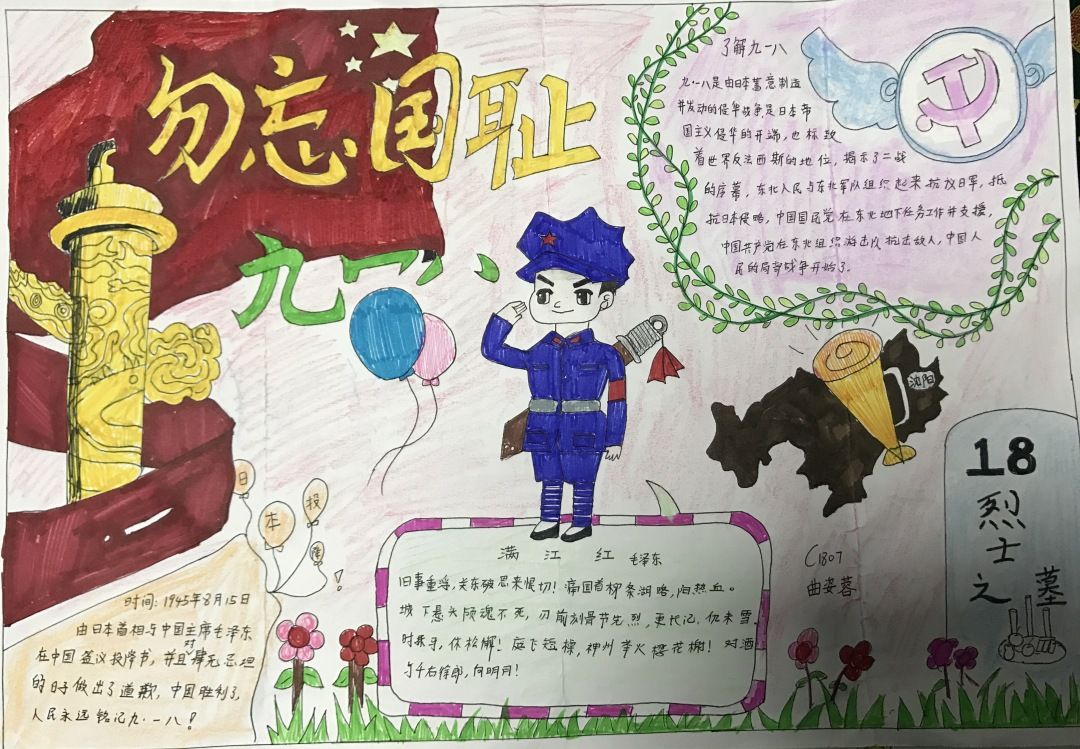 勿忘国耻
九一八
了解九一八
九·一八是由日本蓄意制造
并发动的侵华战争是日本帝
国主义侵华的开端,也标致
着世界反法西斯的地位,揭示了二战
的序幕,东北人民与东北军队组织起来抗放日军,抵
抗日本侵略,中国国民党在东北地下任务工作并支援,
中国共产党在东北组织游击队抗击敌人,中国人
民的局部战争开始了.
沈阳
18
烈士之墓
日本投降!
时间:1945年8月15日
由日本首相与中国主席毛泽东
在中国签议投降书,并且对肆无忌坦
的日子做出了道歉,中国胜利了,
人民永远铭记九·一八!
满江红 毛泽东
旧事重游,关东破思来恨切!痛国首
城下悬头颅魂不死,刃前刻骨节先烈,更代记,仇未雪
时举手,休松懈!庭飞短樟,神州举火樱花榭!对酒
向明月!
C1807
曲姿蓉